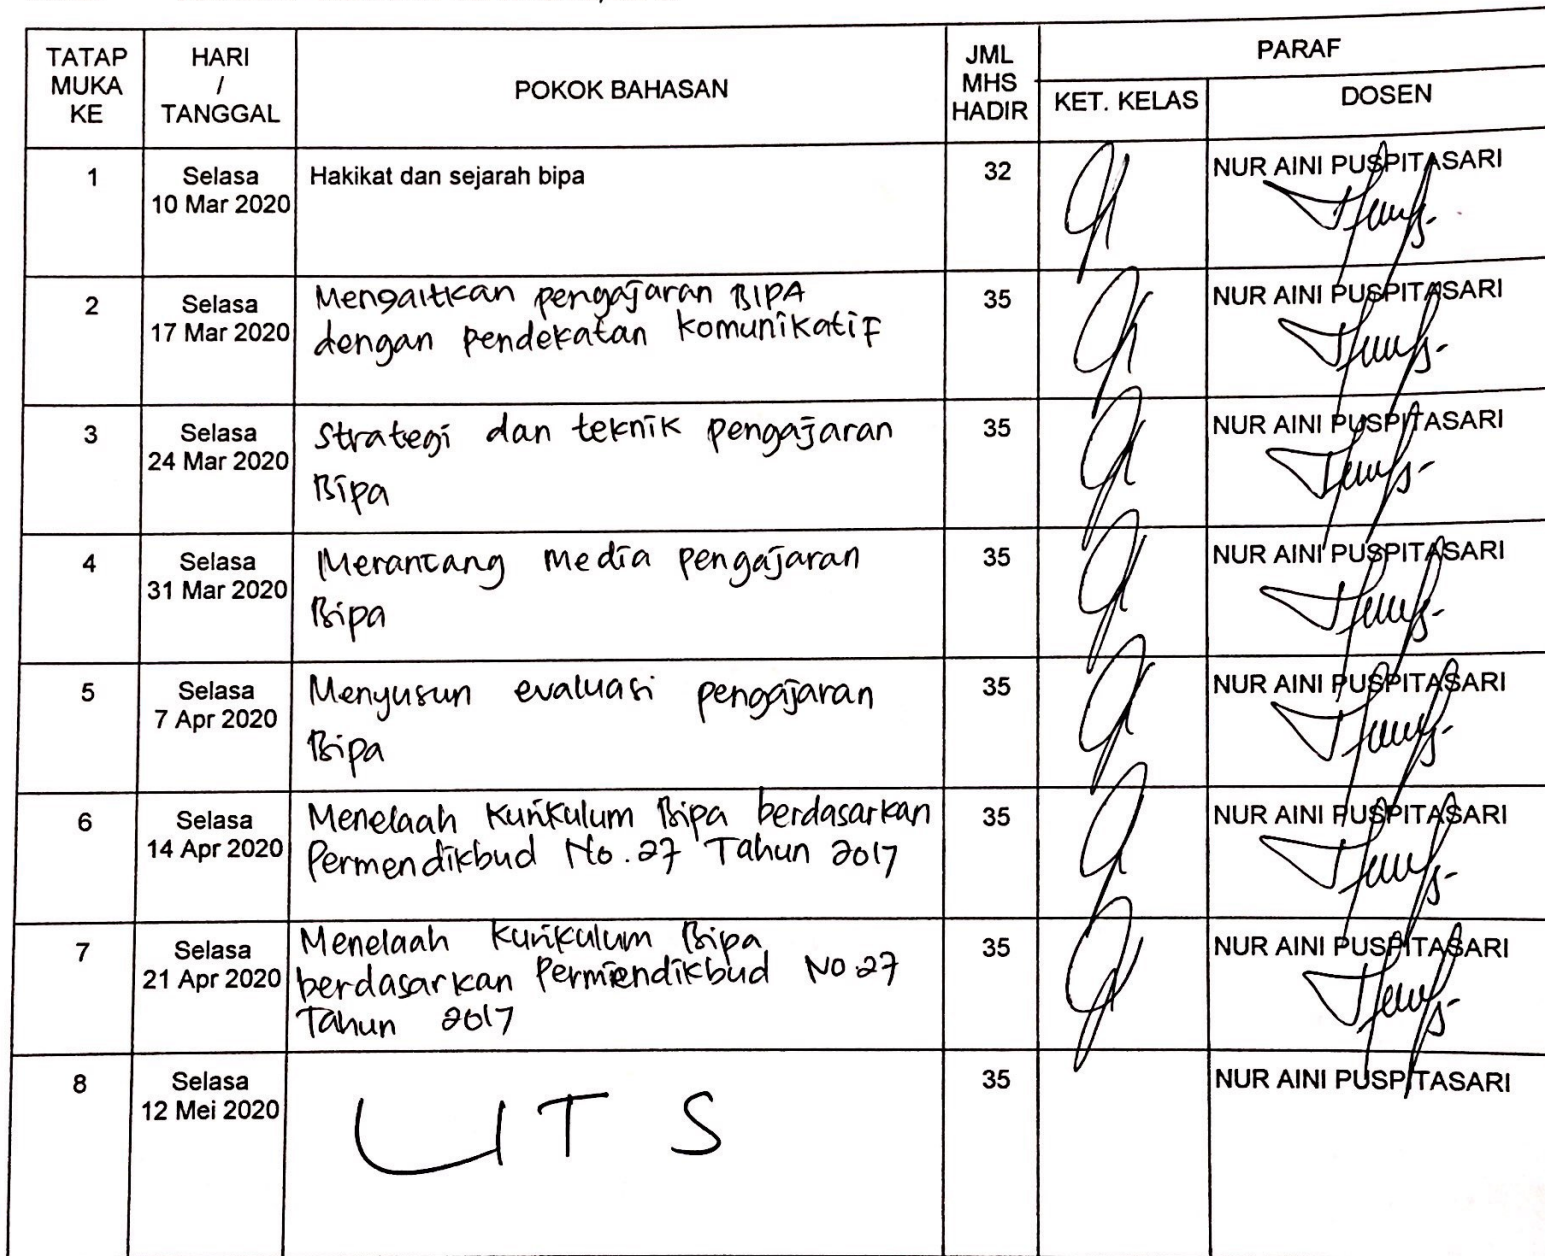 TATAP MUKA KE
HARI / TANGGAL
POKOK BAHASAN
JML MHS HADIR
PARAF
KET. KELAS
DOSEN
1
Selasa
10 Mar 2020
Hakikat dan sejarah bipa
32
NUR AINI PUSPITASARI
2
Selasa
17 Mar 2020
Mengaitkan pengajaran BIPA
dengan pendekatan komunikatif
35
NUR AINI PUSPITASARI
3
Selasa
24 Mar 2020
Strategi dan teknik pengajaran
Bipa
35
NUR AINI PUSPITASARI
4
Selasa
31 Mar 2020
Merancang media pengajaran
Bipa
35
NUR AINI PUSPITASARI
5
Selasa
7 Apr 2020
Menyusun evaluasi pengajaran
Bipa
35
NUR AINI PUSPITASARI
6
Selasa
14 Apr 2020
Menelaah Kurikulum Bipa berdasarkan
Permendikbud No. 27 Tahun 2017
35
NUR AINI PUSPITASARI
7
Selasa
21 Apr 2020
Menelaah Kurikulum Bipa
berdasarkan Permendikbud No 27
Tahun 2017
35
NUR AINI PUSPITASARI
8
Selasa
12 Mei 2020
UTS
35
NUR AINI PUSPITASARI